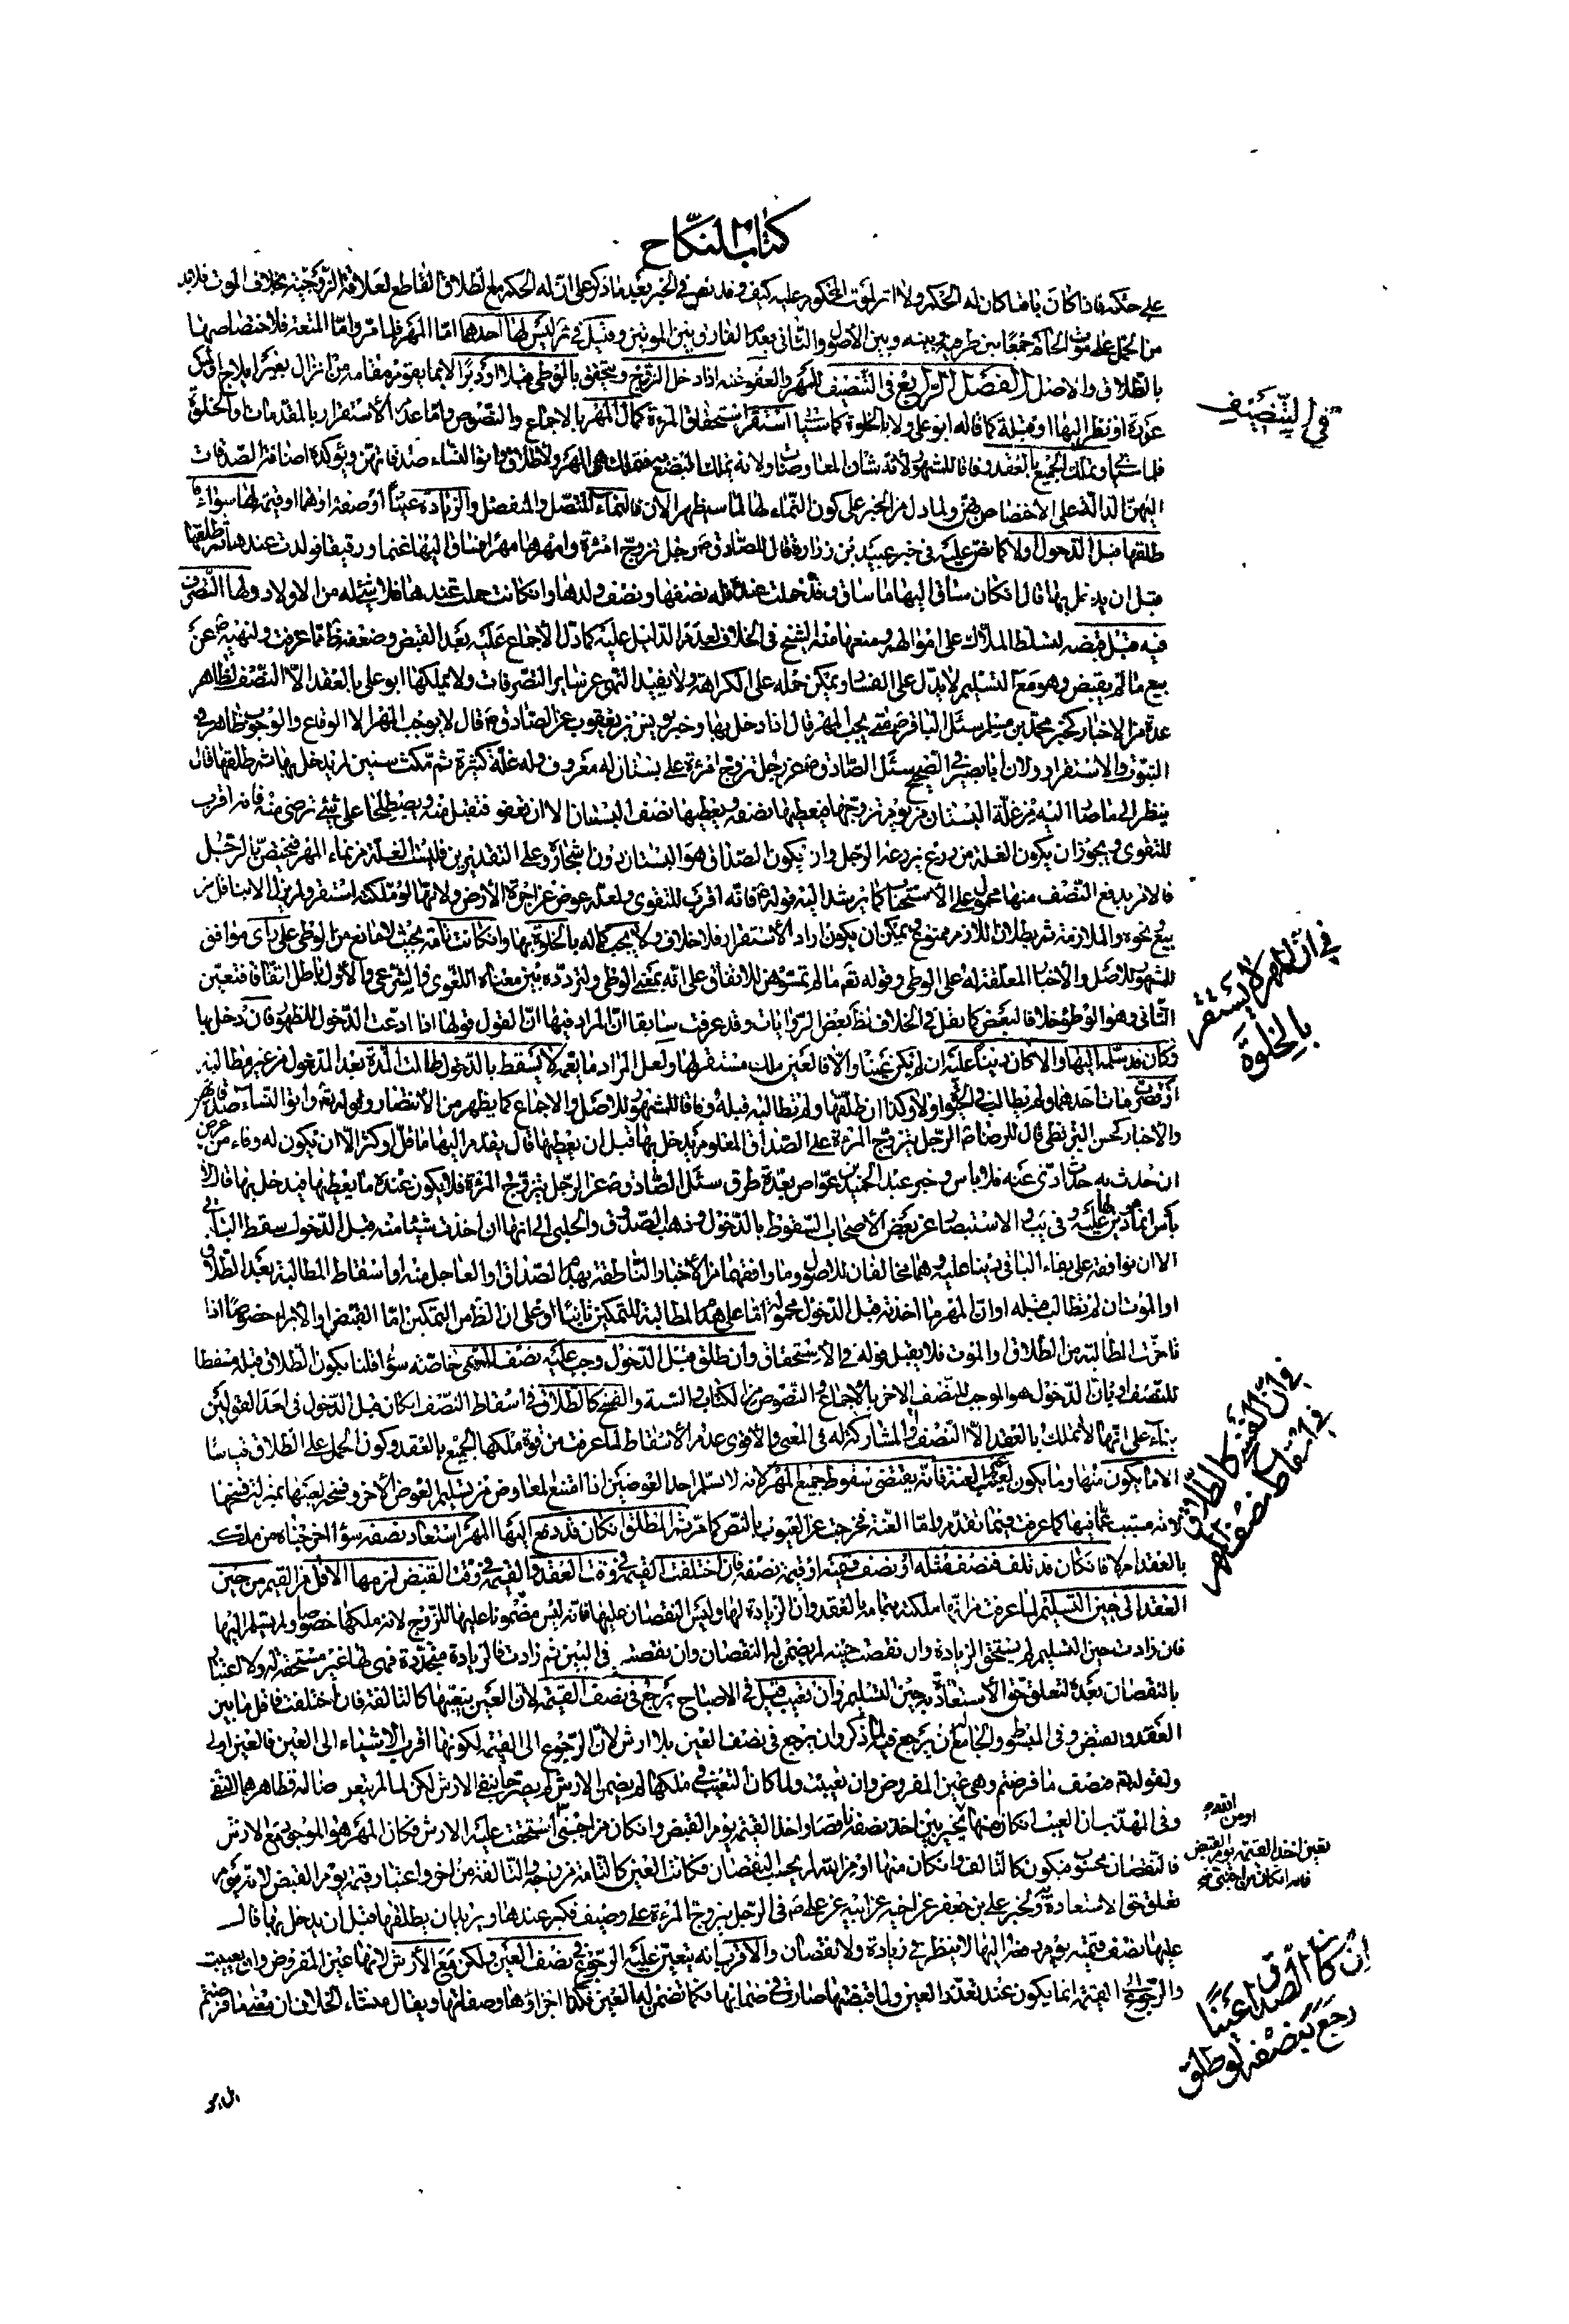 كتاب النكاح
على حكمه فاذا كان باقيا كان له الحكم ولا اثر لموت المحكوم عليه كيف وقد نص في الخبر بعيد ما ذكر على ان له الحكم مع الطلاق القاطع لعلاقة الزوجية بخلاف الموت فلا بد
من الحمل على موت الحاكم جمعا بين طرفيه وبينه وبين الاصول والثاني بعدم الفارق بين الموتين وقيل في ليس لها احدهما امّا المهر فلما مرّ وامّا المتعة فلاختصاصها
بالطلاق والاصل الفصل الرابع في التنصيف للمهر والعفو عنه اذا دخل الزوج ويتحقق بالوطى قبلا او دبرا لا بما يقوم مقامه من انزال بغير ايلاج او لمس
عورة او نظر اليها او قبلة كما قاله ابو علي ولا بالخلوة كما سيأتي استقر استحقاق المرءة كمال المهر بالاجماع والنصوص وامّا عدم الاستقرار بالمقدمات والخلوة
فلما سيأتي وتملك الجميع بالعقد وفاقا للمشهور لانه شان المعاوضات ولانه يملك البضع به فتملك هي المهر ولاطلاق واتوا النساء صدقاتهن ويؤكده اضافة الصدقات
اليهن الدالة على الاختصاص بهن ولما دل من الخبر على كون النماء لها لما سيظهر الان فالنماء المتصل والمنفصل والزيادة عينا او صفة او هما او قيمة لها سواء
طلقها قبل الدخول ولا كما نص عليه في خبر عبيد بن زرارة قال للصادق ع رجل تزوج امرءة وامهرها مهرا فساق اليها غنما ورقيقا فولدت عندها ثم طلقها
قبل ان يدخل بها قال ان كان ساق اليها ما ساق وقد حملت عنده فله نصفها ونصف ولدها وان كانت حملت عندها فلا شئ له من الاولاد ولها التصرف
فيه قبل قبضه لتسلط الملاك على اموالهم ومنعها منه الشيخ في الخلاف لعدم الدليل عليه كما دل الاجماع عليه بعد القبض وضعفه ظ مما عرفت ولنهيه ص عن
بيع ما لم يقبض وهو مع التسليم لا يدل على الفساد ويمكن حمله على الكراهة ولا يفيد النهى عن ساير التصرفات ولا يملكها ابو علي بالعقد الا النصف لظاهر
عدة من الاخبار كخبر محمد بن مسلم سئل الباقر ع متى يجب المهر قال اذا دخل بها وخبر يونس بن يعقوب عن الصادق ع قال لا يوجب المهر الا الوقاع والوجوب ظاهر في
الثبوت والاستقرار ولان ابا بصير في الصحيح سئل الصادق ع عن رجل تزوج امرءة على بستان له معروف وله غلة كثيرة ثم مكث سنين لم يدخل بها ثم طلقها قال
ينظر الى ما صار اليه من غلة البستان من يوم تزوجها فيعطيها نصفه ويعطيها نصف البستان الا ان تعفو فتقبل منه ويصطلحا على شئ ترضى منه فانه اقرب
للتقوى ويجوز ان يكون الغلة من زرع يزرعه الرجل وان يكون الصداق هو البستان دون اشجاره وعلى التقديرين فليست الغلة من نماء المهر فيختص بالرجل
فالامر بدفع النصف منها محمول على الاستحباب كما يرشد اليه قوله ع فانه اقرب للتقوى ولعله عوض عن اجرة الارض ولانها لو ملكته استقر ولم يزل الا بناقل من
بيع ونحوه والملازمة ثم بطلان اللازم ممنوع ويمكن ان يكون اراد الاستقرار فلا خلاف ولا يجب كماله بالخلوة بها وان كانت تامة بحيث لا مانع من الوطى على راى موافق
للمشهور للاصل والاخبار المعلقة له على الوطى وقوله تعم ما لم تمسوهن للاتفاق على انه بمعنى الوطى ولتردده بين معناه اللغوى والشرعى والاول باطل اتفاقا فتعين
الثاني وهو الوطؤ خلافا لبعض كما نقل في الخلاف نظ بعض الروايات وقد عرفت سابقا ان المراد فيها ان القول قولها اذا ادعت الدخول للظهور فان دخل بها
وكان قد سلمه اليها والا كان دينا عليه ان لم يكن عينا والا فالعين ملك مستقر لها ولعل المراد ما يعمه لا يسقط بالدخول طالت المدة بعد الدخول من غير مطالبة
او قصرت مات احدهما ولم يطالب في الحيوة او لا وكذا ان طلقها ولم تطالبه قبله وفاقا للمشهور للاصل والاجماع كما يظهر من الانتصار ولقوله تعم واتوا النساء صدقاتهن
والاخبار كحسن البزنطي قال للرضا ع الرجل يتزوج المرءة على الصداق المعلوم يدخل بها قبل ان يعطيها قال يقدم اليها ما قل او كثر الا ان يكون له وفاء من عرض
ان حدث به حدث ادى عنه فلا باس وخبر عبد الحميد بن عواض بعدة طرق سئل الصادق ع عن الرجل يتزوج المرءة فلا يكون عنده ما يعطيها فيدخل بها قال لا
باس انما هو دين لها عليه وفي يب والاستبصار عن بعض الاصحاب السقوط بالدخول وذهب الصدوق والحلبي الى انها ان اخذت شيئا منه قبل الدخول سقط الباقي
الا ان توافقه على بقاء الباقي دينا عليه وهما مخالفان للاصول وما وافقهما من الاخبار الناطقة بهدم الصداق او العاجل منه او اسقاط المطالبة بعد الطلاق
او الموت ان لم تطالب قبله او ان المهر ما اخذته قبل الدخول محمولة اما على هدم المطالبة للتمكين ثانيا او على ان الظ من التمكين امّا القبض او الابراء خصوصا اذا
تاخرت المطالبة من الطلاق او الموت فلا يقبل قوله في الاستحقاق وان طلق قبل الدخول وجب عليه نصف المسمى خاصة سواء قلنا بكون الطلاق قبله مسقطا
للنصف او بان الدخول هو الموجب للنصف الاخر بالاجماع والنصوص من الكتاب والسنة والفسخ كالطلاق في اسقاط النصف ان كان قبل الدخول في احد القولين
بناء على انها لا تملك بالعقد الا النصف والمشاركته له في المعنى والاقوى عدم الاسقاط لما عرفت من قوة ملكها الجميع بالعقد وكون الحمل على الطلاق قياسا
الا ما يكون منها وما يكون لعيب غير العنة فانه يقتضى سقوط جميع المهر لانه لا يسلم احد العوضين اذا امتنع المعاوض من تسليم العوض الاخر وفسخه بعيبها بمنزلة فسخها
لانه مسبب عما فيها كما عرفت فيما تقدم وامّا العنة فخرجت عن العيوب بالنص كما مر ثم المطلق ان كان قد دفع اليها المهر استعاد نصفه سواء اخرجناه من ملكه
بالعقد ام لا فان كان قد تلف فنصف مثله او نصف قيمته او قيمة نصفه فان اختلفت القيمة في وقت العقد والقيمة في وقت القبض لزمها الاقل من القيم من حين
العقد الى حين التسليم لما عرفت من انها ملكته بتمامه بالعقد وان الزيادة لها وليس النقصان عليها فانه ليس مضمونا عليها للزوج لانه ملكها خصوصا ولم يتسلم اليها
فان زادت حين التسليم لم يستحق الزيادة وان نقصت حينه لم يضمن له النقصان وان نقصت في البين ثم زادت فالزيادة متجددة فهى لها غير مستحقة له ولا اعتبار
بالنقصان بعده لتعلق حق الاستعادة به حين التسليم وان تعيب قيل في الاصباح يرجع في نصف القيمة لان العين بتعيبها كالتالفة فان اختلفت فاقل ما بين
العقد والقبض وفي المبسوط والجامع ان يرجع فيه لما ذكر وان يرجع في نصف العين بلا ارش لان الرجوع الى القيمة لكونها اقرب الاشياء الى العين فالعين اولى
ولقوله تعم فنصف ما فرضتم وهى عين المفروض وان تعيبت ولما كان التعيب في ملكها لم يضمن الارش ولم يصرحا بنفى الارش لكن لما لم يتعرضا له فظاهرهما النفى
وفي المهذب ان العيب ان كان منها تخير بين اخذ نصفه ناقصا واخذ القيمة يوم القبض وان كان من اجنبى استحقت عليه الارش فكان المهر هو الموجود مع الارش
فالنقصان محسوب فيكون كالتالف وان كان منها او من الله لم يحسب النقصان فكانت العين كالتامة من وجه والتالفة من اخر واعتبار قيمته يوم القبض لانه يوم
تعلق حق الاستعادة به ولخبر علي بن جعفر عن اخيه عن ابيه عن علي ع في الرجل يتزوج المرءة على وصيف فكبر عندها ويريد ان يطلقها قبل ان يدخل بها قال
عليها نصف قيمته يوم دفعه اليها لا ينظر في زيادة ولا نقصان والاقرب انه يتعين عليه الرجوع في نصف العين ولكن مع الارش لانها عين المفروض وان تعيبت
والرجوع الى القيمة انما يكون عند تعذر العين ولما قبضتها صارت في ضمانها فكما تضمن له العين فكذا اجزاؤها وصفاتها ويقال منشاء الخلاف ان معنى ما فرضتم
في التنصيف
في ان المهر لا يستقر
بالخلوة
في ان الفسخ كالطلاق
في اسقاط نصف المهر
او من الله
تعين اخذ القيمة يوم القبض
فان كان من اجنبى
ان كان الصداق عينا
رجع بنصفه لو طلق